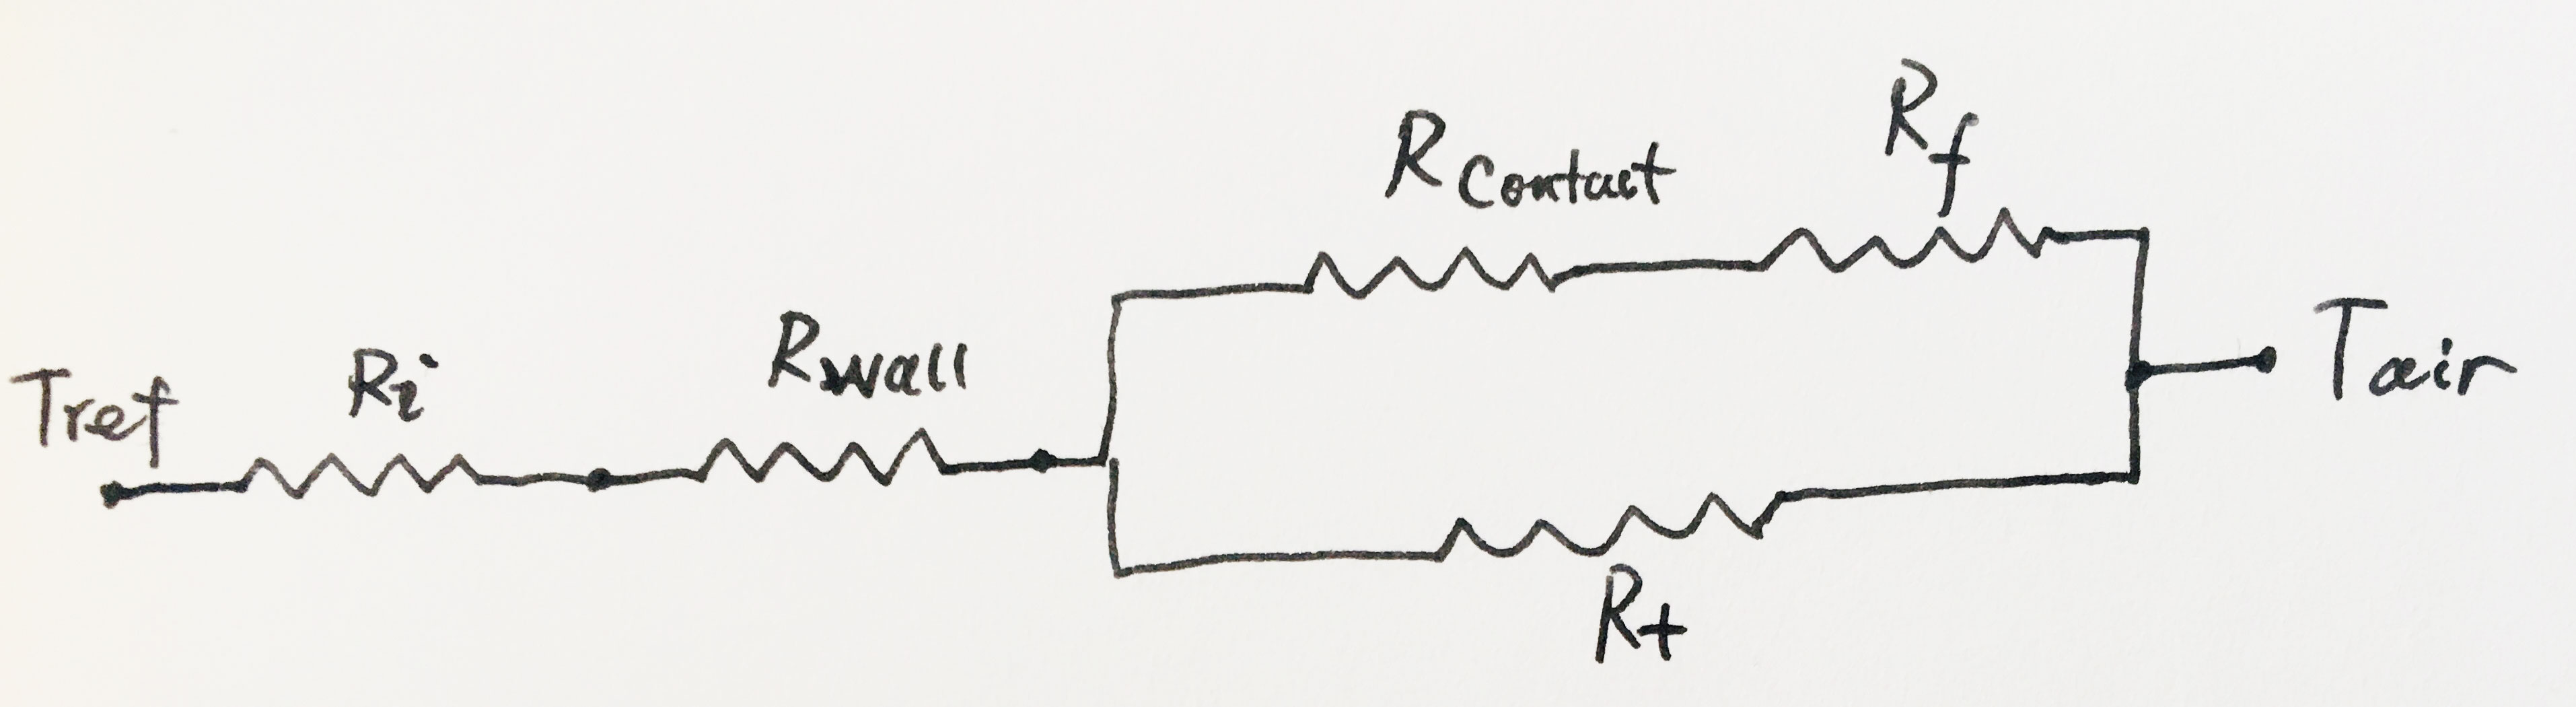 Tref
Ri
Rwall
RContact
Rf
Rt
Tair